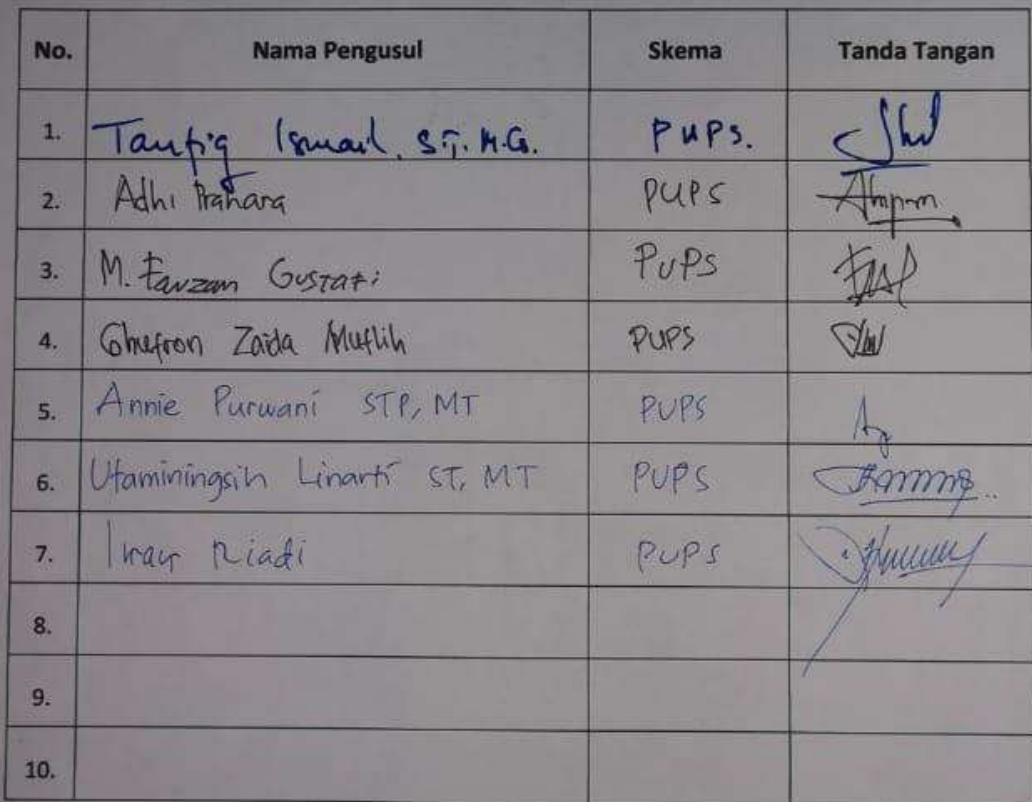 No. Nama Pengusul Skema Tanda Tangan
1. Taufiq Ismail, S.T. M.Cs. PUPS.
2. Adhi Prahara PUPS
3. M. Farzan Gustafi PUPS
4. Ghufron Zaida Muflih PUPS
5. Annie Purwani STP, MT PUPS
6. Utaminingsih Linarti ST, MT PUPS
7. Riadi PUPS
8.
9.
10.